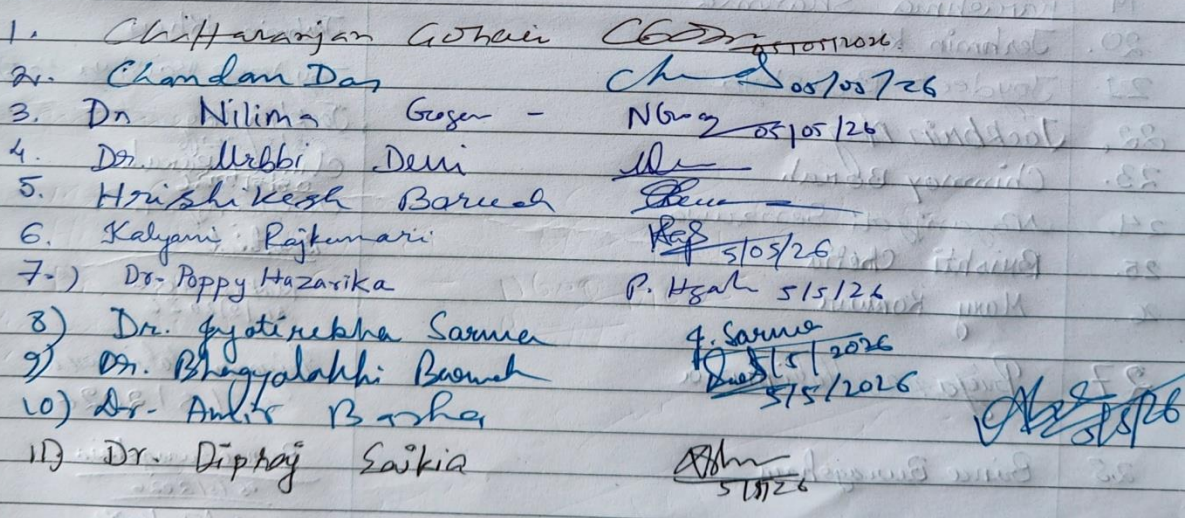 1. Chittaranjan Gohain 05/05/2026.
2. Chandan Das 05/05/26
3. Dr Nilima Gogoi - NGogoi 05/05/26
4. Dr Urbbi Devi
5. Hrishikesh Baruah
6. Kalyani Rajkumari 5/05/26
7.) Dr. Poppy Hazarika P. Hzah 5/5/26
8) Dr. Jyotirekha Sarma J. Sarma 5/5/2026
9) Dr. Bhagyalakhi Baruah 5/5/2026
10) Dr. 5/5/26
11) Dr. Diphoj Saikia 5/5/26